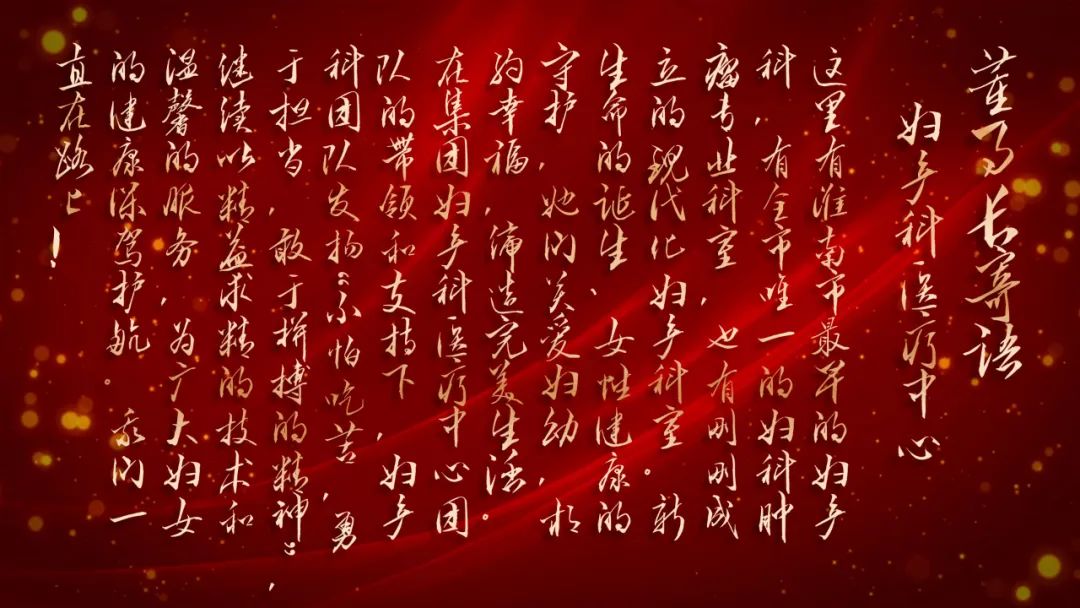 董事长寄语
妇产科医疗中心
这里有淮南市最早的妇产
科，有全市唯一的妇科肿
瘤专业科室，也有刚刚成
立的现代化妇产科室。新
生命的诞生、女性健康的
守护，她们关爱妇幼，相
约幸福，缔造完美生活。
在集团妇产科医疗中心团
队的带领和支持下，妇产
科团队发扬“不怕吃苦，勇
于担当，敢于拼搏的精神”，
继续以精益求精的技术和
温馨的服务，为广大妇女
的健康保驾护航。我们一
直在路上！